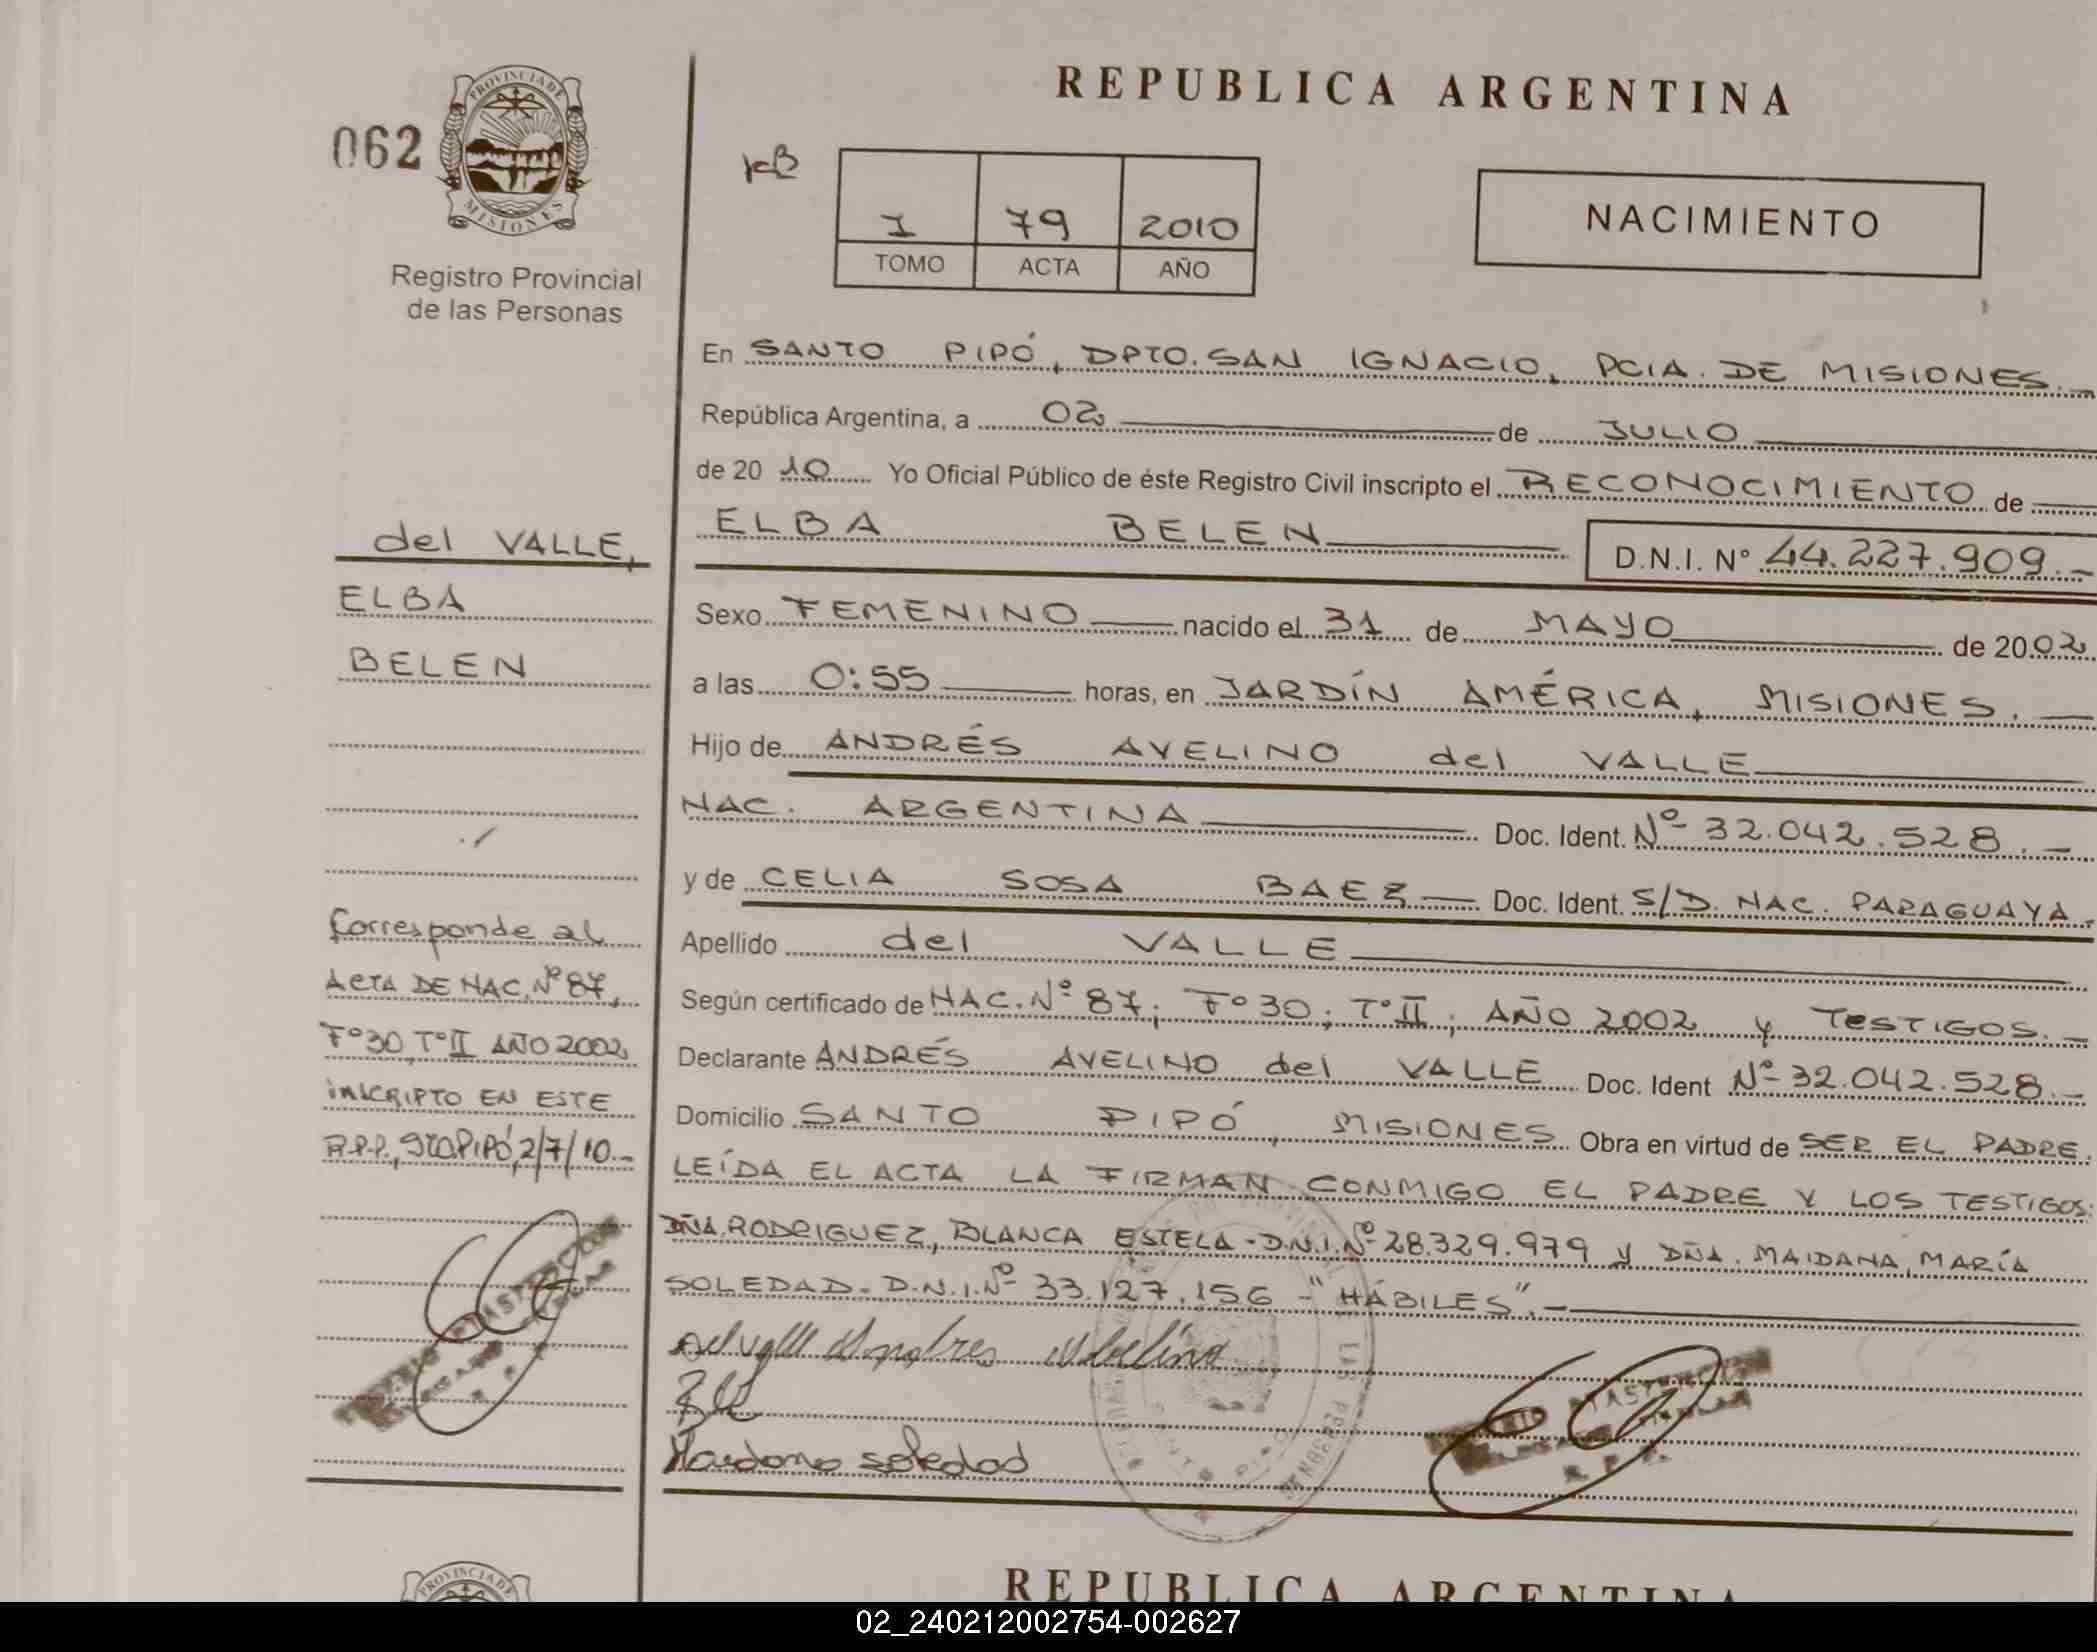 REPUBLICA ARGENTINA
062
PROVINCIA DE
MISIONES
Registro Provincial
de las Personas
I 79 2010
TOMO ACTA AÑO
NACIMIENTO
En SANTO PIPÓ, DPTO. SAN IGNACIO, PCIA. DE MISIONES.-
República Argentina, a 02 de JULIO
de 20 10 Yo Oficial Público de éste Registro Civil inscripto el RECONOCIMIENTO de
ELBA BELEN D.N.I. Nº 44.227.909.-
Sexo FEMENINO nacido el 31 de MAYO de 2002
a las 0:55 horas, en JARDÍN AMÉRICA, MISIONES.
Hijo de ANDRÉS AVELINO del VALLE
NAC. ARGENTINA Doc. Ident. Nº 32.042.528.-
y de CELIA SOSA BAEZ Doc. Ident. S/D. NAC. PARAGUAYA.
Apellido del VALLE
Según certificado de NAC. Nº 87; Fº 30; Tº II; AÑO 2002 y TESTIGOS.-
Declarante ANDRÉS AVELINO del VALLE Doc. Ident Nº 32.042.528.-
Domicilio SANTO PIPÓ, MISIONES Obra en virtud de SER EL PADRE.
LEÍDA EL ACTA LA FIRMAN CONMIGO EL PADRE Y LOS TESTIGOS:
DÑA. RODRIGUEZ, BLANCA ESTELA - D.N.I. Nº 28.329.979 y DÑA. MAIDANA, MARÍA
SOLEDAD - D.N.I. Nº 33.127.156 - "HÁBILES".-
del valle Andres Abelino
Maidana soledad
del VALLE,
ELBA
BELEN
Corresponde al
ACTA DE NAC. Nº 87,
Fº 30, Tº II AÑO 2002
INSCRIPTO EN ESTE
R.P.P., STO. PIPÓ, 2/7/10.-
PROVINCIA DE
REPUBLICA ARGENTINA
02_240212002754-002627